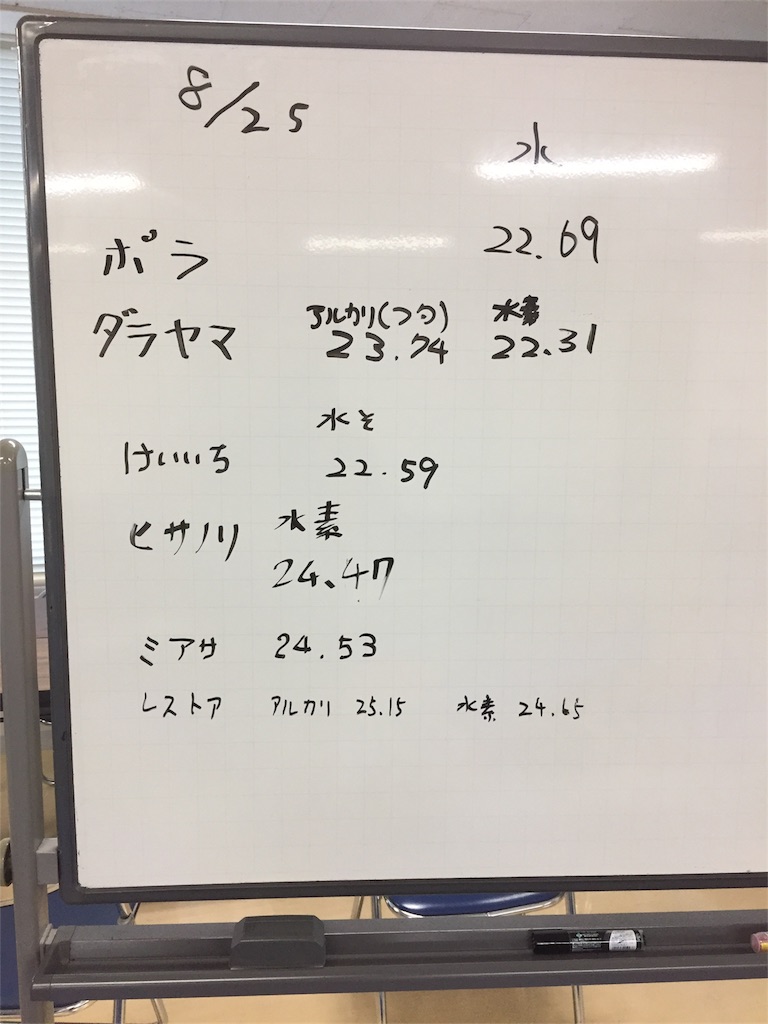 8/25
水
ポラ 22.69
アルカリ(つづ) 水素
ダラヤマ 23.74 22.31
水そ
けいいち 22.59
ヒサノリ 水素
24.47
ミアサ 24.53
レストア アルカリ 25.15 水素 24.65